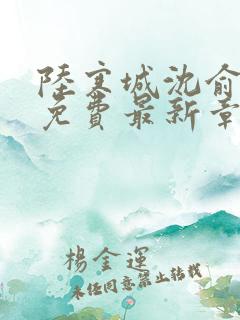 陸寒城沈俞
免費最新章
楊金運
未经同意禁止转载